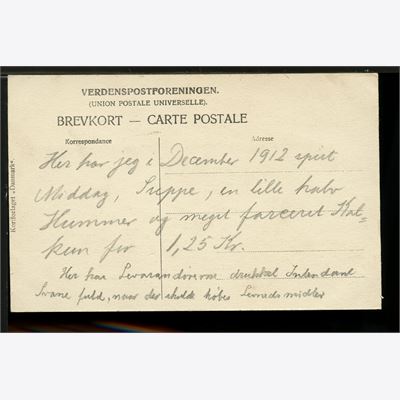 VERDENSPOSTFORENINGEN.
(UNION POSTALE UNIVERSELLE).
BREVKORT — CARTE POSTALE
Korrespondance
Adresse
Her har jeg i December 1912 spist
Middag, Suppe, en lille halv
Hummer og meget farceret Kal-
kun for 1,25 Kr.
Her har Leverandørerne drukket Intendant
Svane fuld, naar der skulde købes Levnedsmidler
Kortforlaget «Danmark»